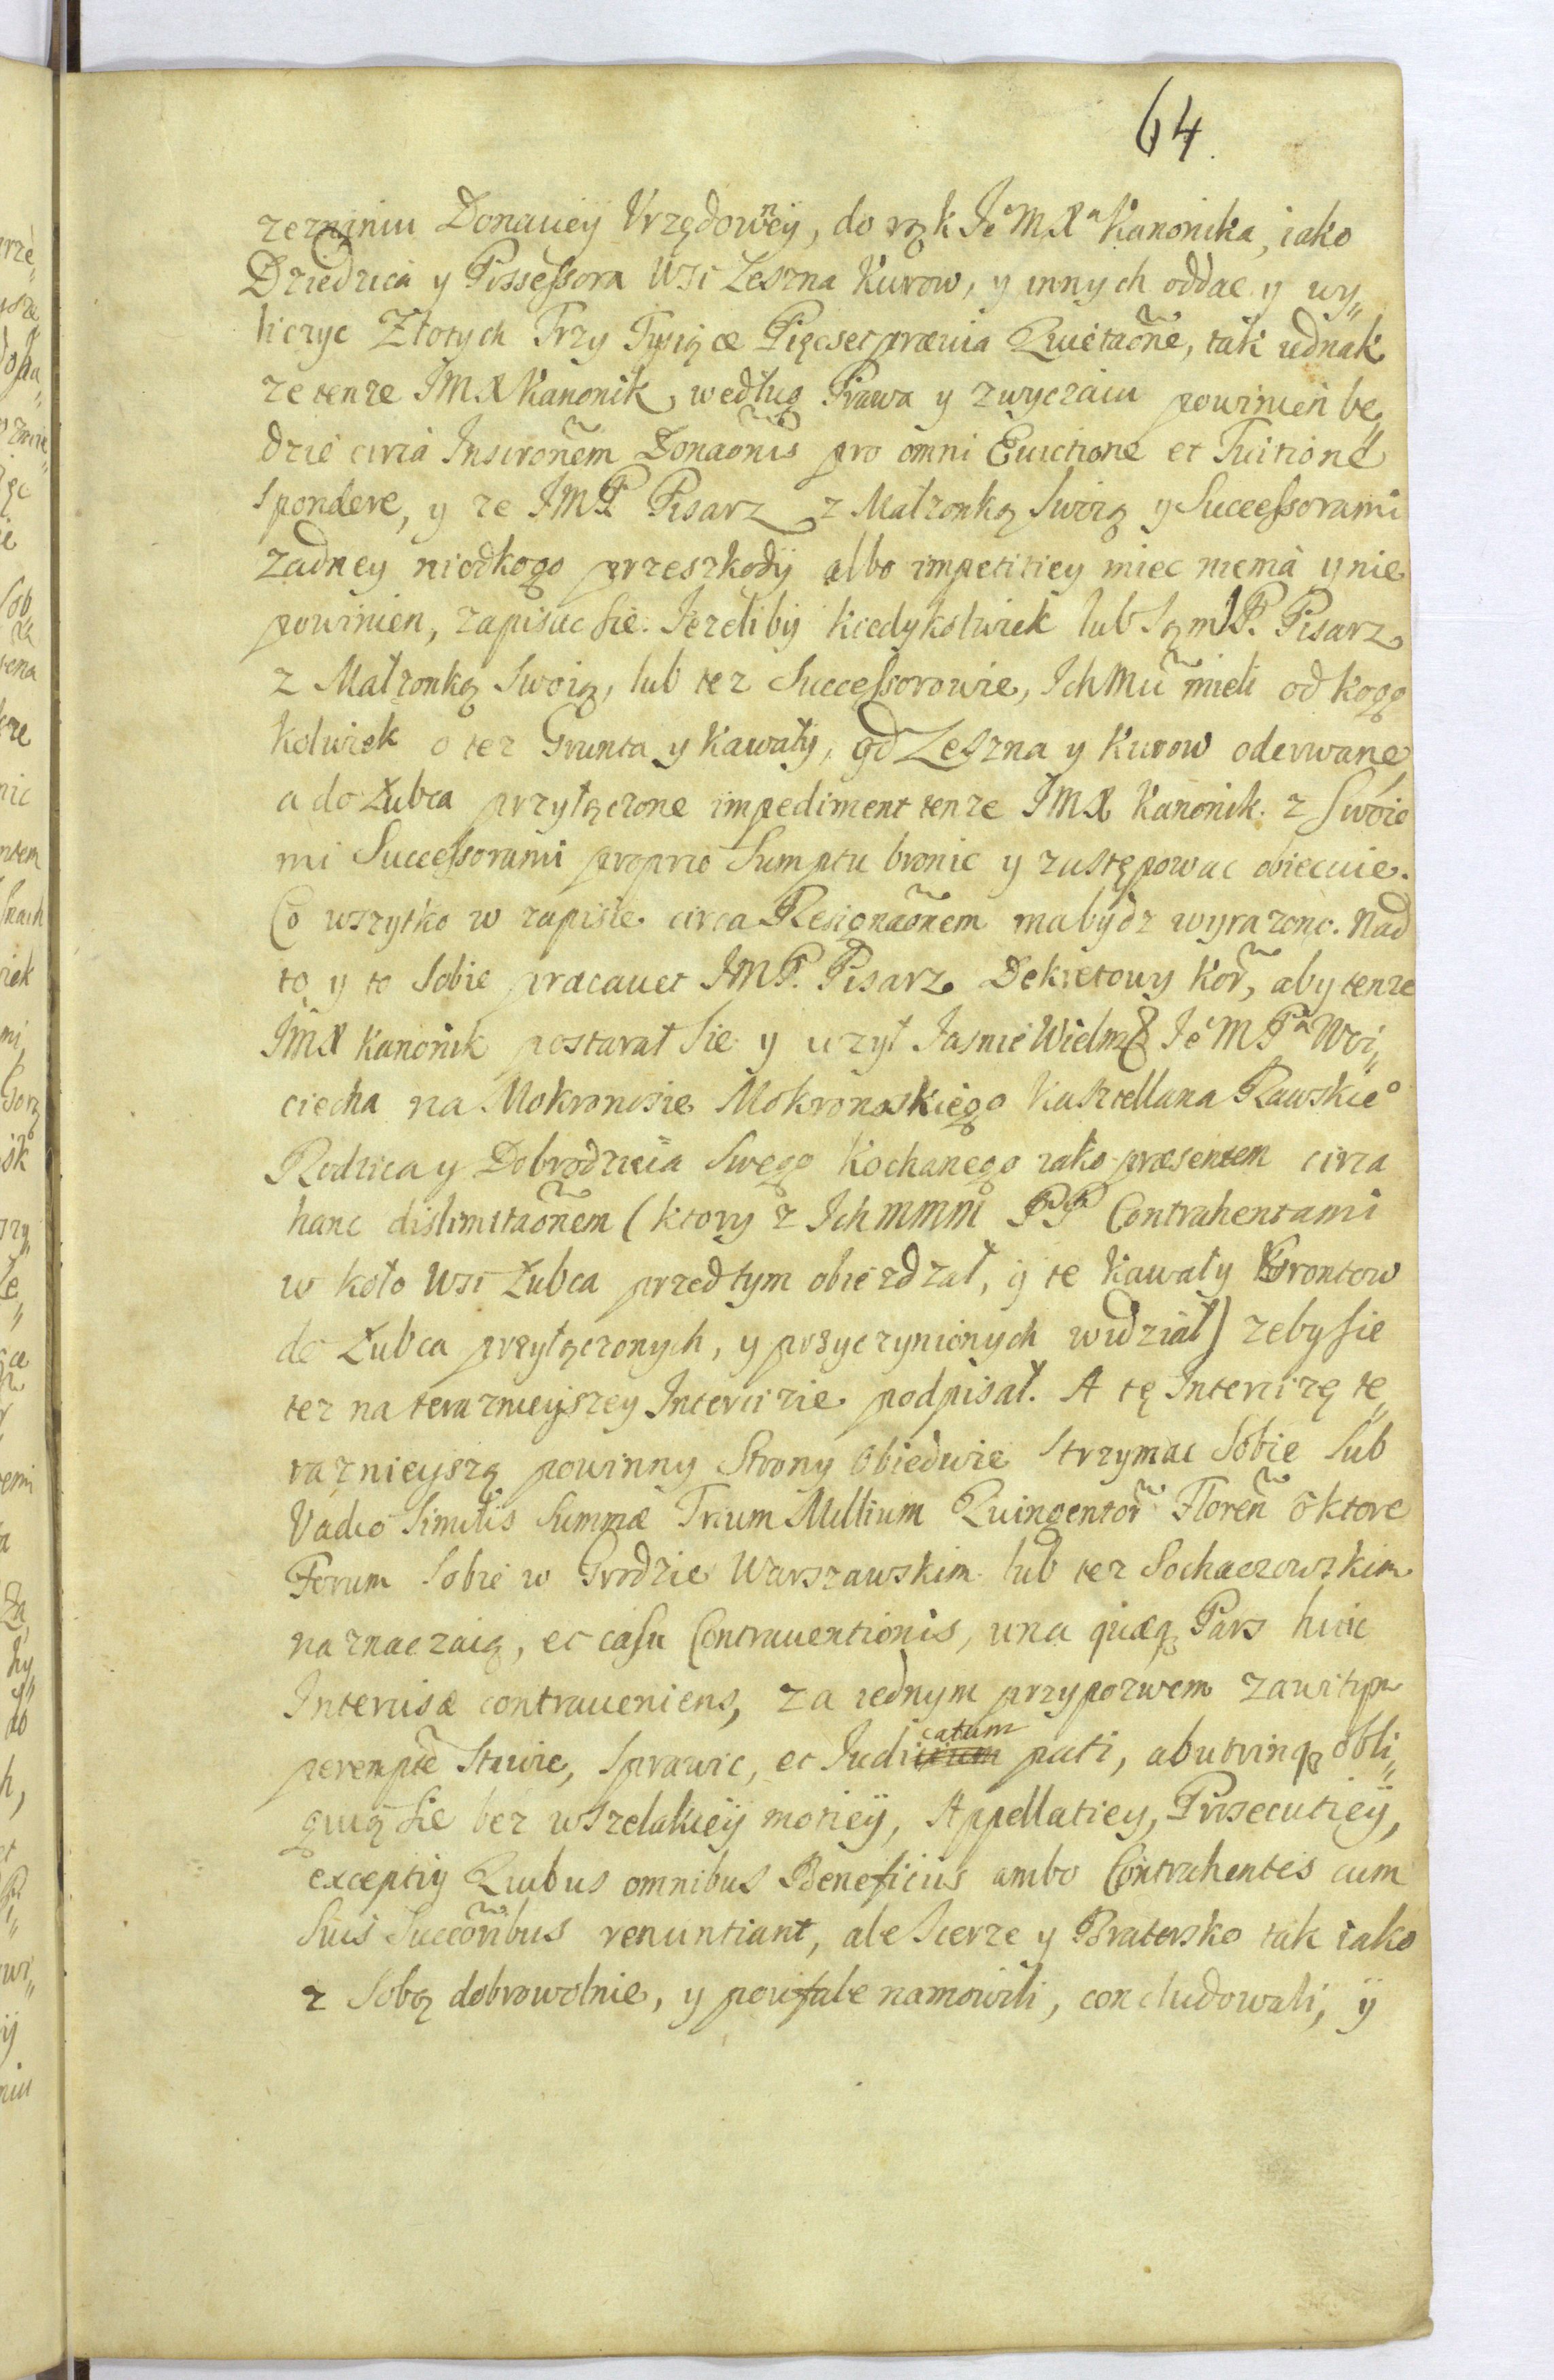 64.
zeznaniu Donaciey Vrzędowney, do rąk Je͡o M X^a Kanonika, iako
Dziedzica y Possessora Wsi Leszna Kurow, y innych oddac y wy„
liczyc Złotych Trzy Tysiące Pięcset prævia Quietaõne, tak iednak
ze tenze JMX Kanonik, według Prawa y zwyczaiu powinien bę„
dzie circa Inscrõnem Donaõnis pro omni Euictione et Tuitione
Spondere, y ze JMP Pisarz z Małzonką Swoią y Successorami
zadney niodkogo przeszkody albo impetitiey miec niema y nie
powinien, zapisac sie. Jezeliby kiedykolwiek lub Sąm JP. Pisarz
z Małzonką Swoią, lub tez Successorowie, Ich Mći mieli od kogo
kolwiek o tez Grunta y Kawały, od Leszna y Kurow oderwane,
a do Łubca przyłączone impediment tenze JMX Kanonik. z Swoie
mi Successorami proprio Sumptu bronic y zastępowac obiecuie.
Co wszytko w zapisie circa Resignaõnem ma bydz wyrazono. Nad
to y to Sobie præcauet JMP. Pisarz Dekretowy Kor̃, aby tenze
JMX Kanonik postarał Sie y uzył Jasnie Wielmo Je͡o M P^a Woi„
ciecha na Mokronosie Mokronoskiego Kasztellana Rawskie^o
Rodzica y Dobrodzieia Swego Kochanego iako præsentem circa
hanc dislimitaõnem (ktory z Ich mmm PP Contrahentami
w koło Wsi Łubca przedtym obiezdzał, y te Kawały Grontow
do Łubca przyłączonych, y przyczynionych widział) zeby sie
tez na teraznieyszey Intercizie podpisał. A tę Intercizę te„
raznieyszą powinny Strony obiedwie Strzymac Sobie Sub
Vadio Similis Summæ Trium Millium Quingentor̃ Floreñ o ktore
Forum Sobie w Grodzie Warszawskim lub tez Sochaczowskim
naznaczaią, et casu Contrauentionis, una quæq Pars huic
Intercisæ contraueniens, za iednym przypozwem zawitym
perempte͂ Stawic, Sprawic, et Judicatum pati, ab utrinq obli„
guią sie bez wszelakiey motiey, Appellatiey, Prosecutiey,
exceptiy Quibus omnibus Beneficiis ambo Contrahentes cum
Suis Succõribus renuntiant, ale Szcerze y Bratersko tak iako
z Sobą dobrowolnie, y poufale namowili, concludowali, y